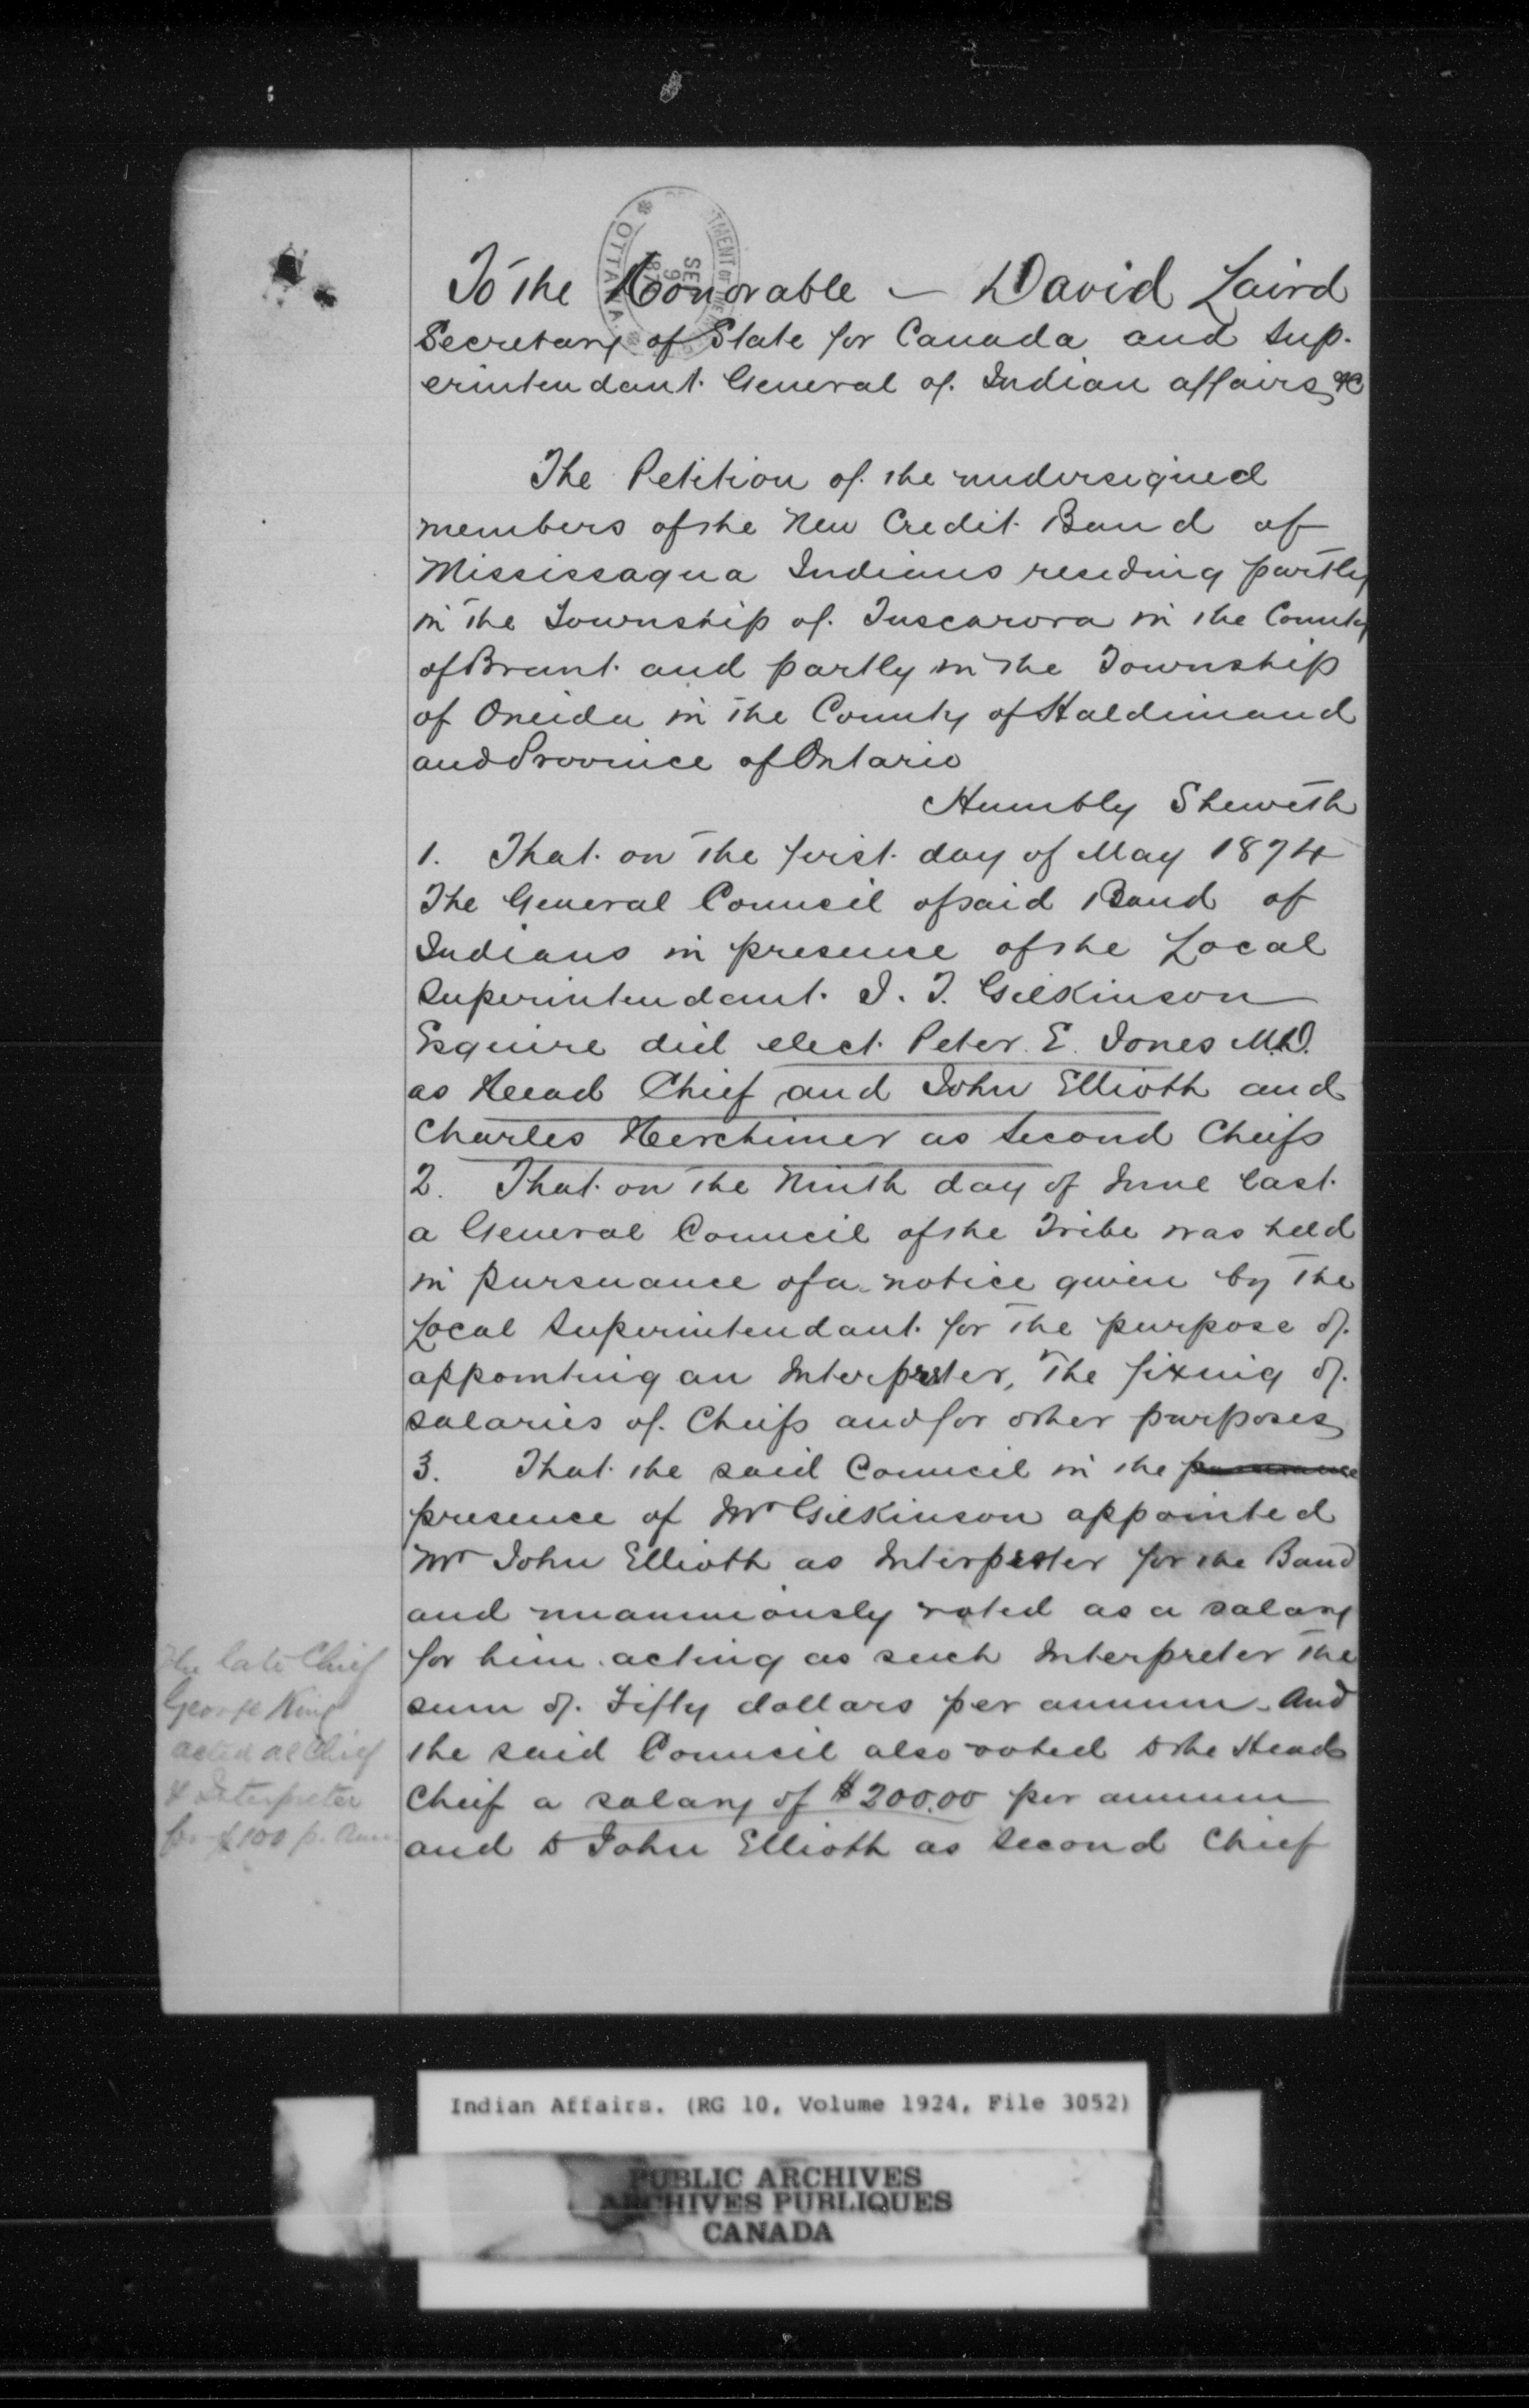 To the Honorable — David Laird
Secretary of State for Canada and Sup-
erintendant General of Indian affairs &c
The Petition of the undersigned
members of the New Credit Band of
Mississaqua Indians residing partly
in the Township of Tuscarora in the County
of Brant and partly in the Township
of Oneida in the County of Haldimand
and Province of Ontario
Humbly Sheweth
1. That on the first day of May 1874
The General Council of said Band of
Indians in presence of the Local
Superintendant J. T. Gilkinson
Esquire did elect Peter E. Jones M.D.
as Head Chief and John Ellioth and
Charles Herchimer as Second Chiefs
2. That on the Ninth day of June last
a General Council of the Tribe was held
in pursuance of a notice given by the
Local Superintendant for the purpose of
appointing an Interpreter, The fixing of
salaries of Chiefs and for other purposes
3. That the said Council in the
presence of Mr Gilkinson appointed
Mr John Ellioth as Interpreter for the Band
and unanimously voted as a salary
for him acting as such Interpreter the
sum of Fifty dollars per annum. And
the said Council also voted to the Head
Chief a salary of $200.00 per annum
and to John Ellioth as Second Chief
The late Chief
George King
acted as Chief
& Interpreter
for $100 p. Ann
TMENT OF THE
SEP
9
187
OTTAWA
Indian Affairs. (RG 10, Volume 1924, File 3052)
PUBLIC ARCHIVES
ARCHIVES PUBLIQUES
CANADA